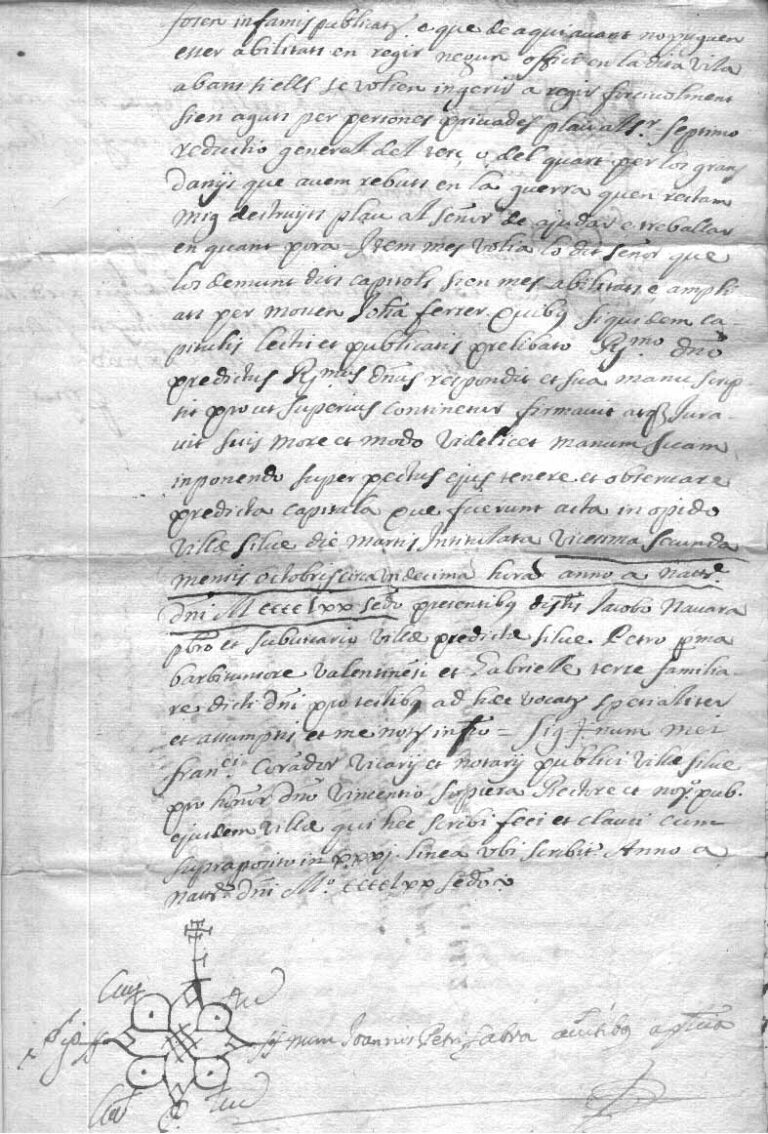 fosen infamis publicats e que de aqui auant no puguen
esser abilitats en regir negun offici en la dita vila
abans si ells se volien ingerir a regir furcivolment
sien aguts per persones priuades plau al sr. septimo
reductio general del terç o del quart per los grans
danys que auem rebuts en la guerra quen restam
mig destruyts plau al señor de ajudar e treballar
en quant pora = Item mes volia lo dit señor que
los demunt dits capitols sien mes abilitats e ampli
ats per mossen Joha ferrer. Quibq siquidem ca-
pitulis lectis et publicatis prelibato Rmo dño
predictus Rmus dñus respondit et sua manu scrip
sit prout superius continetur firmauit atq Jura-
uit suis more et modo videlicet manum suam
inponendo super pectus ejus tenere et obseruare
predicta capitula que fuerunt acta in opido
villæ silue die martis Intitulata vicesima secunda
mensis octobris circa undecima hora anno a natte
dni M cccc lxx secdo presentibq Jacobo Nauara
pbro et subvicario villæ predictæ silue. Petro
barbitonsore valentinensi et Gabrielle terre familia-
re dicti dni pro testibq ad hec vocatis specialiter
et assumptis et me noty infro = Sig+num mei
francci Corador vicarij et notarij publici villæ silue
pro honor dno vincentio Rectore et noty pub.
ejusdem villæ qui hec scribi feci et clausi cum
supraposito in xxxj. linea ubi scribit Anno a
natte dni Mo cccc lxx secdo
Sig num Joannis Petri Sabra